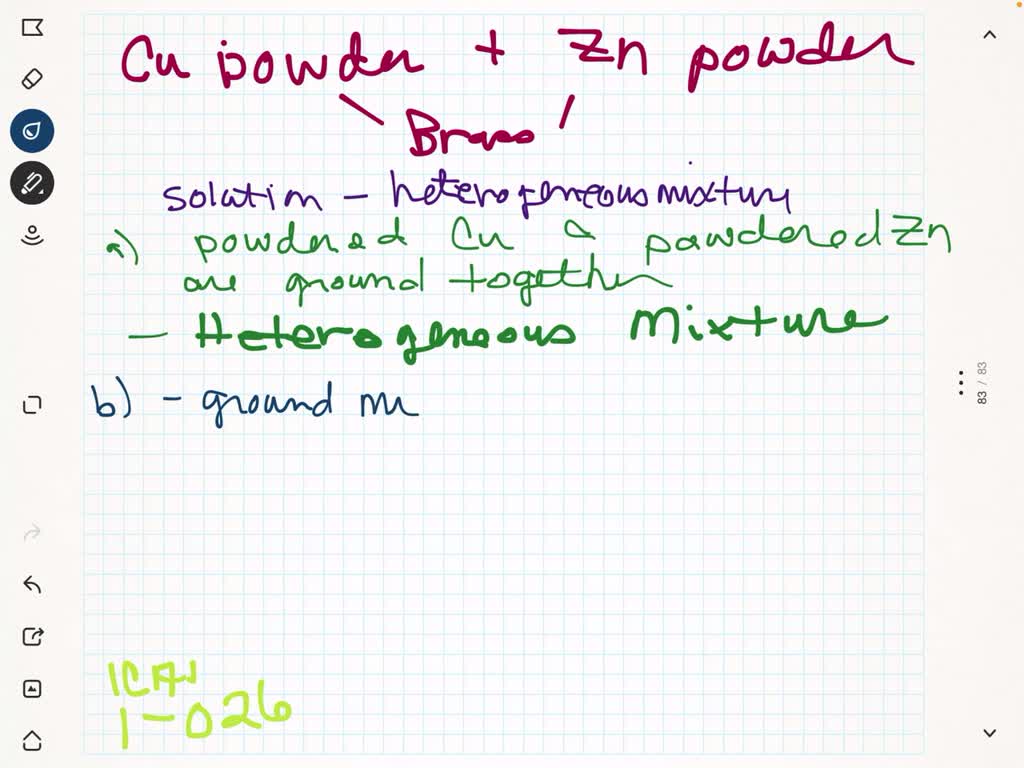 Cu powder + Zn powder
Brass
solution - heterogeneous mixture
a) powdered Cu & powdered Zn
are ground together
- Heterogeneous Mixture
b) - ground m
83 / 83
1-026